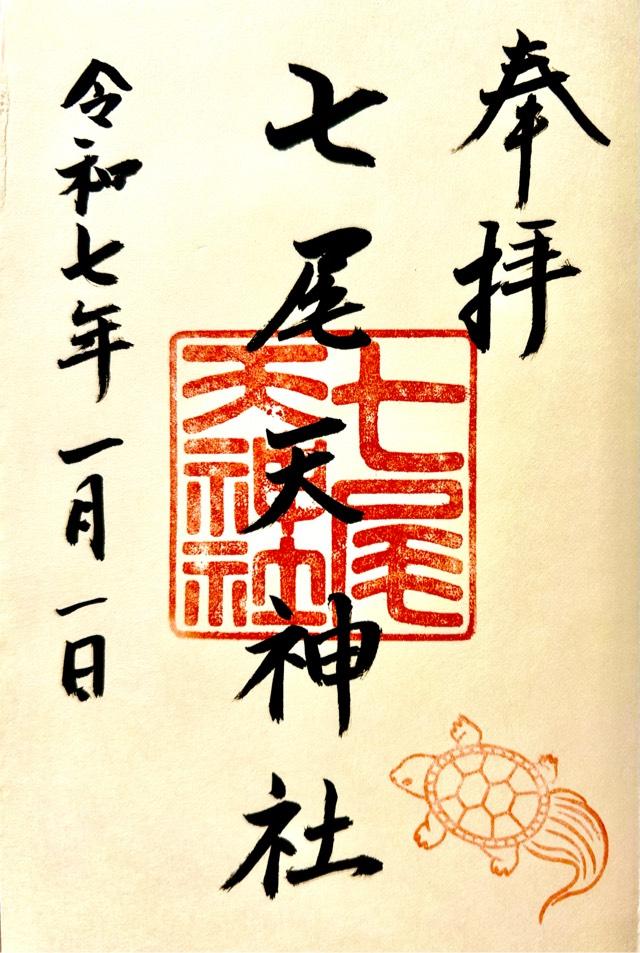 奉拝
七尾天神社
七尾
天神社
令和七年一月一日